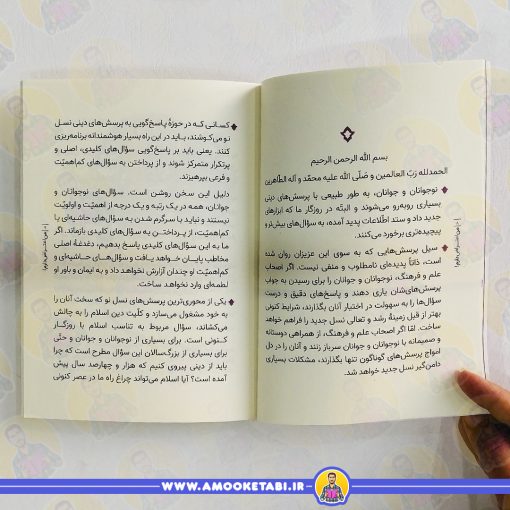 بسم الله الرحمن الرحیم
الحمدلله رَبّ العالمین و صَلَّی الله علیه محمّد و آله الطّاهرین
نوجوانان و جوانان، به طور طبیعی با پرسش‌های دینی
بسیاری روبه‌رو می‌شوند و البتّه در روزگار ما که ابزارهای
جدید داد و ستد اطّلاعات پدید آمده، به سؤال‌های بیش‌تر و
پیچیده‌تری برخورد می‌کنند.
سیل پرسش‌هایی که به سوی این عزیزان روان شده
است، ذاتاً پدیده‌ای نامطلوب و منفی نیست. اگر اصحاب
علم و فرهنگ، نوجوانان و جوانان را برای رسیدن به جواب
پرسش‌های‌شان یاری دهند و پاسخ‌های دقیق و درست
سؤال‌ها را به سهولت در اختیار آنان بگذارند، شرایط کنونی
بهتر از قبل زمینهٔ رشد و تعالی نسل جدید را فراهم خواهد
ساخت. امّا اگر اصحاب علم و فرهنگ، از همراهی دوستانه
و صمیمانه با نوجوانان و جوانان سرباز زنند و آنان را در دل
امواج پرسش‌های گوناگون تنها بگذارند، مشکلات بسیاری
دامن‌گیر نسل جدید خواهد شد.
کسانی که در حوزهٔ پاسخ‌گویی به پرسش‌های دینی نسل
نو می‌کوشند، باید در این راه بسیار هوشمندانه برنامه‌ریزی
کنند. یعنی باید بر پاسخ‌گویی سؤال‌های کلیدی، اصلی و
پرتکرار متمرکز شوند و از پرداختن به سؤال‌های کم‌اهمیّت
و فرعی بپرهیزند.
دلیل این سخن روشن است. سؤال‌های نوجوانان و
جوانان، همه در یک رتبه و یک درجه از اهمیّت و اولویّت
نیستند و نباید با سرگرم شدن به سؤال‌های حاشیه‌ای یا
کم‌اهمیّت، از پرداختن به سؤال‌های کلیدی بازماند. اگر
ما به این سؤال‌های کلیدی پاسخ بدهیم، دغدغهٔ اصلی
مخاطب پایان خواهد یافت و سؤال‌های حاشیه‌ای و
کم‌اهمیّت او چندان آزارش نخواهد داد و به ایمان و باور او
لطمه‌ای وارد نخواهد ساخت.
یکی از محوری‌ترین پرسش‌های نسل نو که سخت آنان را
به خود مشغول می‌سازد و کلّیت دین اسلام را به چالش
می‌کشاند، سؤال مربوط به تناسب اسلام با روزگار
کنونی است. برای بسیاری از نوجوانان و جوانان و حتّی
برای بسیاری از بزرگ‌سالان این سؤال مطرح است که چرا
باید از دینی پیروی کنیم که هزار و چهارصد سال پیش
آمده است؟ آیا اسلام می‌تواند چراغ راه ما در عصر کنونی
WWW.AMOOKETABI.IR